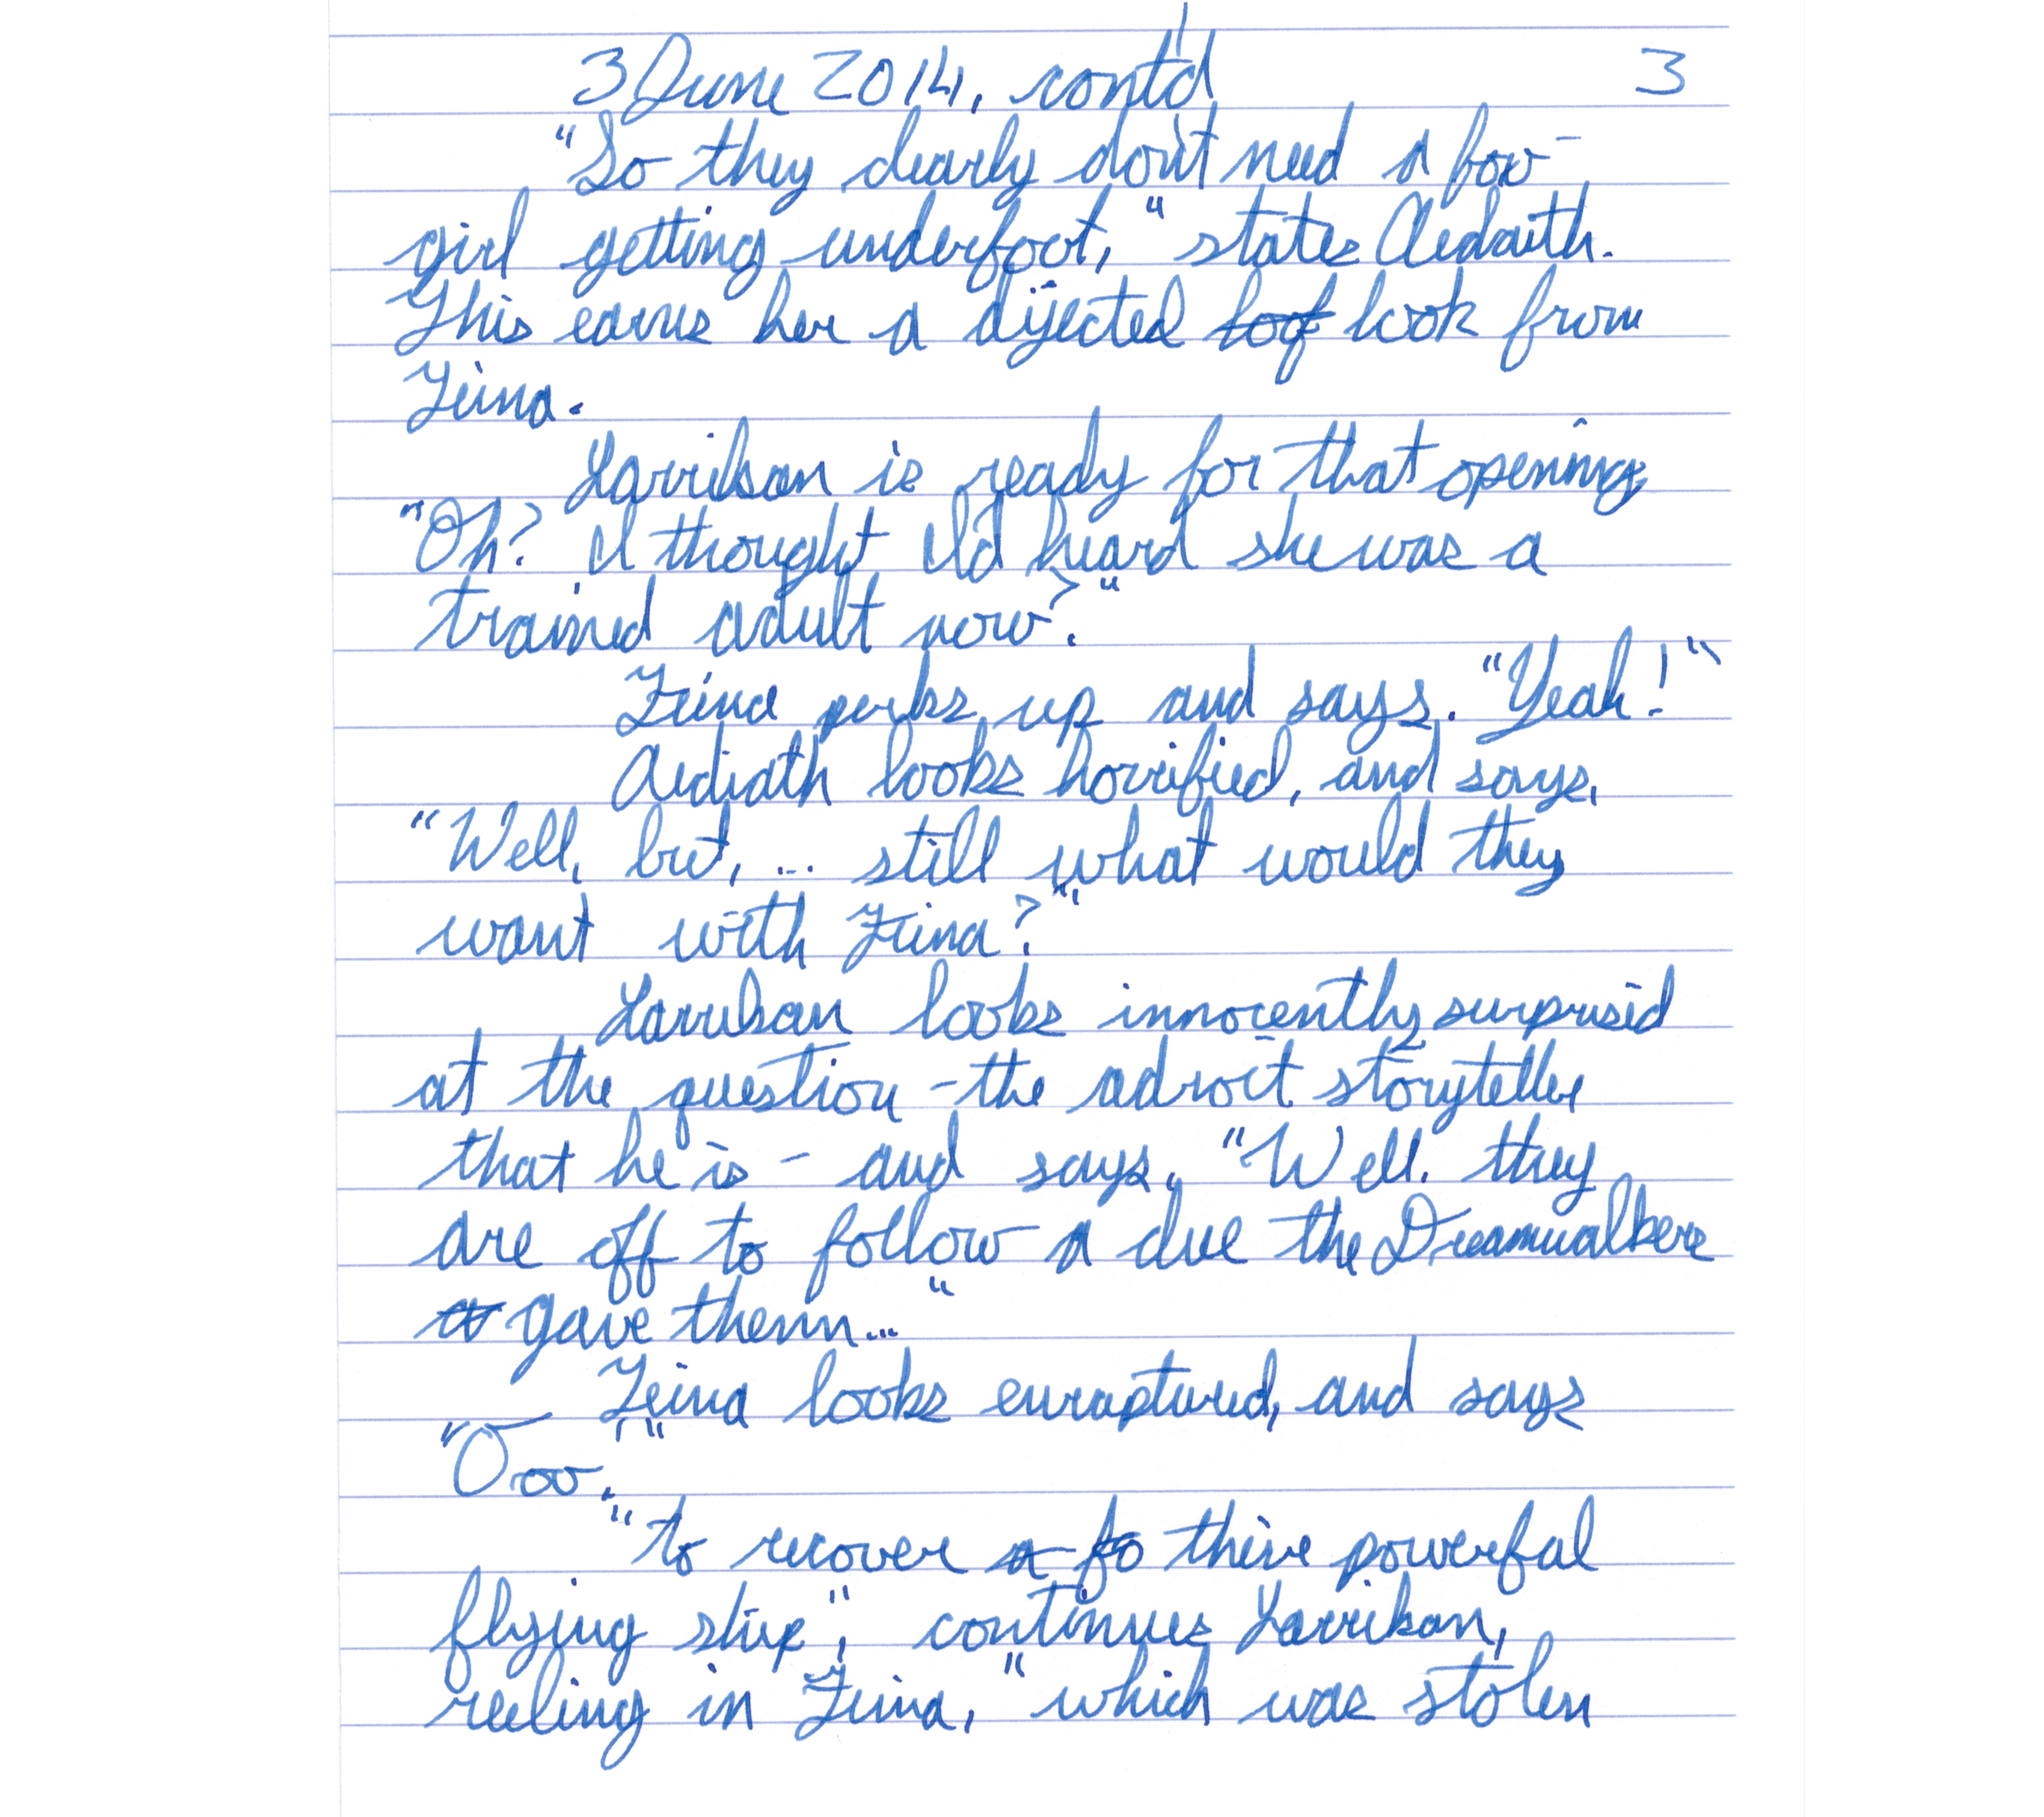 3 June 2014, cont'd 3
"So they clearly don't need a fox-
girl getting underfoot," states Aedaith.
This earns her a dejected look from
Zeina.
Larrikan is ready for that opening,
"Oh? I thought I'd heard she was a
trained adult now?"
Zeina perks up and says, "Yeah!"
Aediath looks horrified, and says,
"Well, but, ... still what would they
want with Zeina?"
Larrikan looks innocently surprised
at the question - the adroit storyteller
that he is - and says, "Well, they
are off to follow a clue the Dreamwalkers
gave them..."
Zeina looks enraptured, and says
"Ooo!"
"to recover their powerful
flying ship", continues Larrikan,
reeling in Zeina, "which was stolen